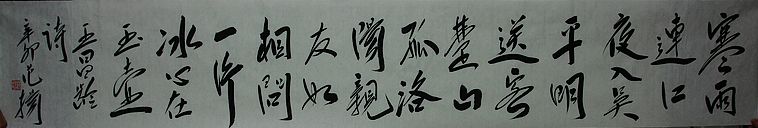 寒雨
連江
夜入吳
平明
送客
楚山
孤洛
陽親
友如
相問
一片
冰心在
玉壺
王昌齡
詩
辛卯